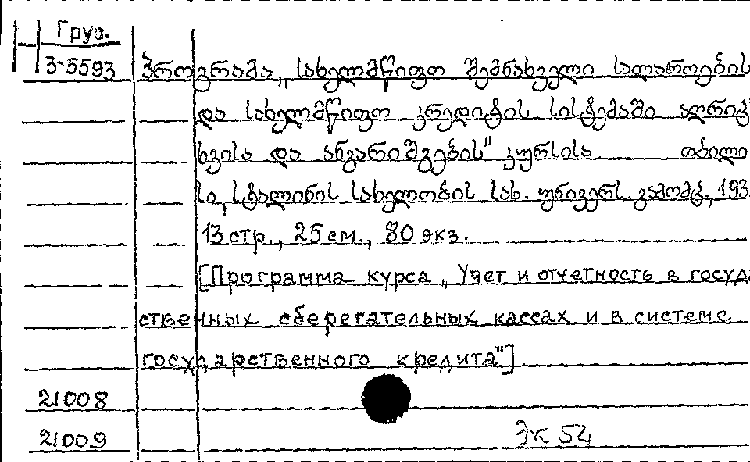 Груз.
3-5593 პროგრამა „სახელმწიფო შემნახველი სალაროების
და სახელმწიფო კრედიტის სისტემაში აღრიც
ხვისა და ანგარიშგების" კურსისა თბილი
სი, სტალინის სახელობის სახ. უნივერს. გამომც., 193
13 стр., 25 см., 80 экз.
[Программа курса „Учет и отчетность в госуда
ственных сберегательных кассах и в системе
государственного кредита"]
21008
21009 Эк 54